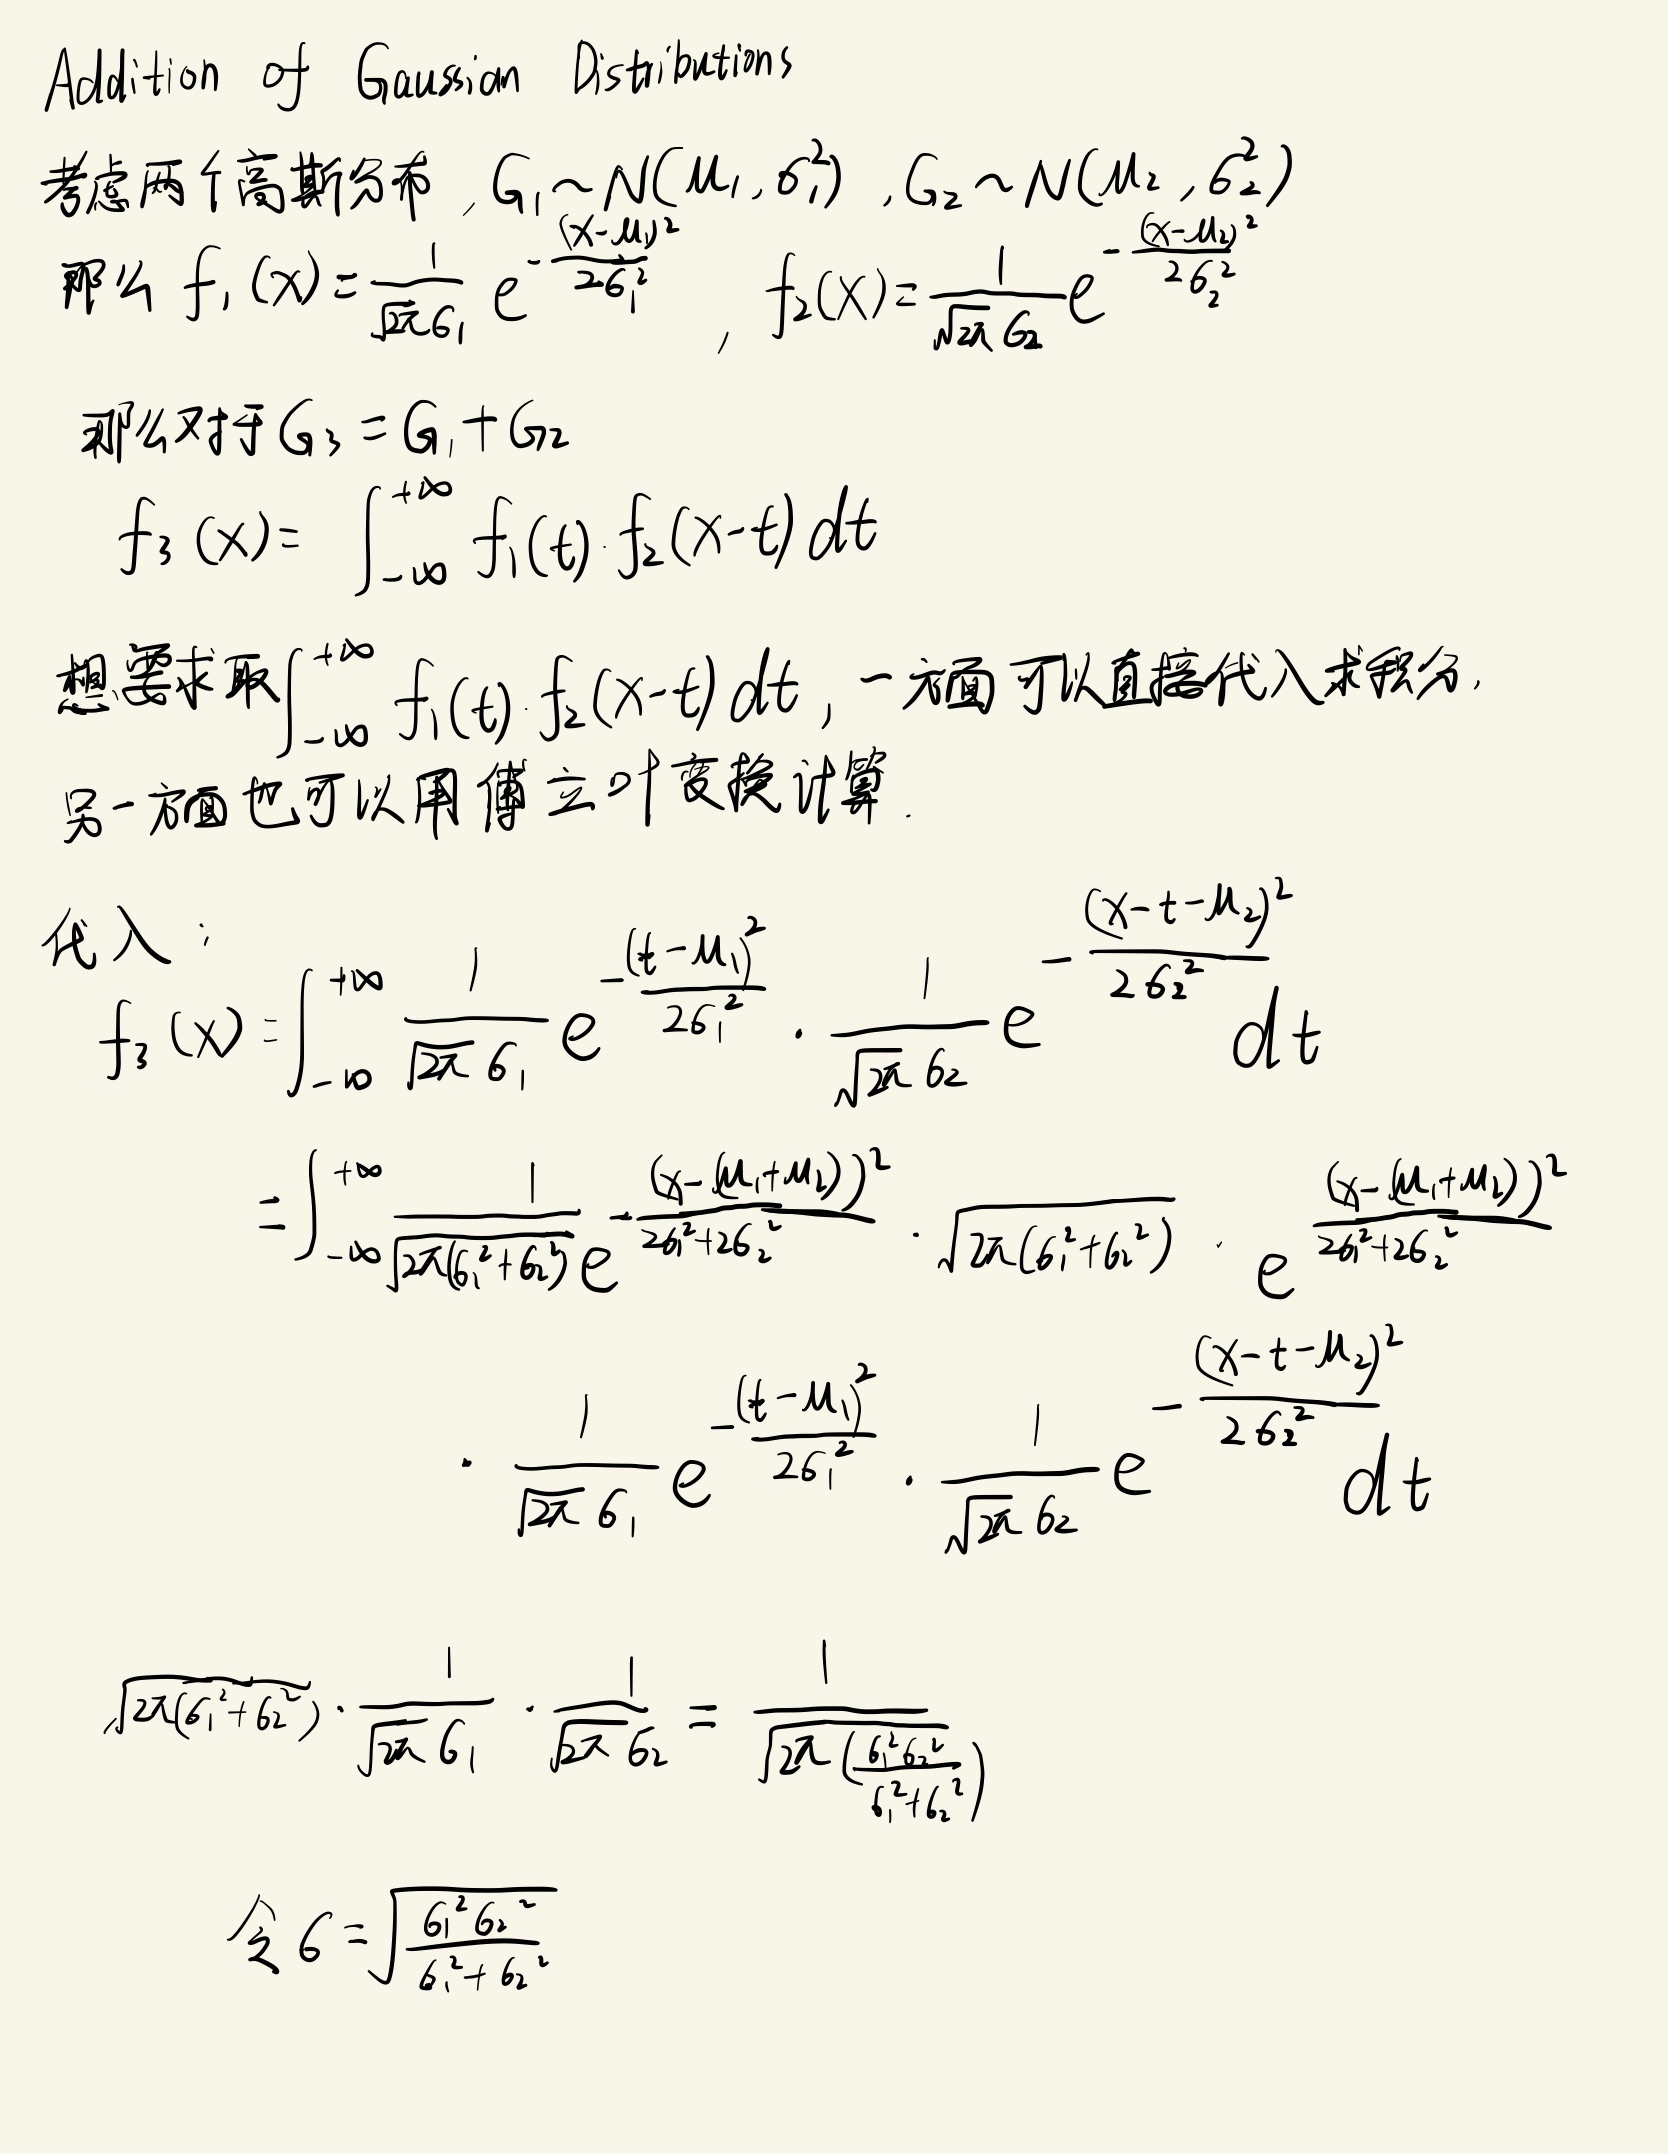 Addition of Gaussian Distributions
考虑两个高斯分布, G₁~N(μ₁,σ₁²), G₂~N(μ₂,σ₂²)
那么 f₁(x)=\frac{1}{\sqrt{2π}σ₁} e^{-\frac{(x-μ₁)²}{2σ₁²}}, f₂(x)=\frac{1}{\sqrt{2π}σ₂} e^{-\frac{(x-μ₂)²}{2σ₂²}}
那么对于G₃=G₁+G₂
f₃(x)=\int_{-∞}^{+∞} f₁(t)·f₂(x-t)dt
想要求取\int_{-∞}^{+∞} f₁(t)·f₂(x-t)dt, 一方面可以直接代入求积分,
另一方面也可以用傅立叶变换计算.
代入:
f₃(x)=\int_{-∞}^{+∞} \frac{1}{\sqrt{2π}σ₁} e^{-\frac{(t-μ₁)²}{2σ₁²}}·\frac{1}{\sqrt{2π}σ₂} e^{-\frac{(x-t-μ₂)²}{2σ₂²}} dt
=\int_{-∞}^{+∞} \frac{1}{\sqrt{2π(σ₁²+σ₂²)}} e^{-\frac{(x-(μ₁+μ₂))²}{2σ₁²+2σ₂²}}·\sqrt{2π(σ₁²+σ₂²)}·e^{\frac{(x-(μ₁+μ₂))²}{2σ₁²+2σ₂²}}
·\frac{1}{\sqrt{2π}σ₁} e^{-\frac{(t-μ₁)²}{2σ₁²}}·\frac{1}{\sqrt{2π}σ₂} e^{-\frac{(x-t-μ₂)²}{2σ₂²}} dt
\sqrt{2π(σ₁²+σ₂²)}·\frac{1}{\sqrt{2π}σ₁}·\frac{1}{\sqrt{2π}σ₂}=\frac{1}{\sqrt{2π(\frac{σ₁²σ₂²}{σ₁²+σ₂²})}}
令σ=\sqrt{\frac{σ₁²σ₂²}{σ₁²+σ₂²}}